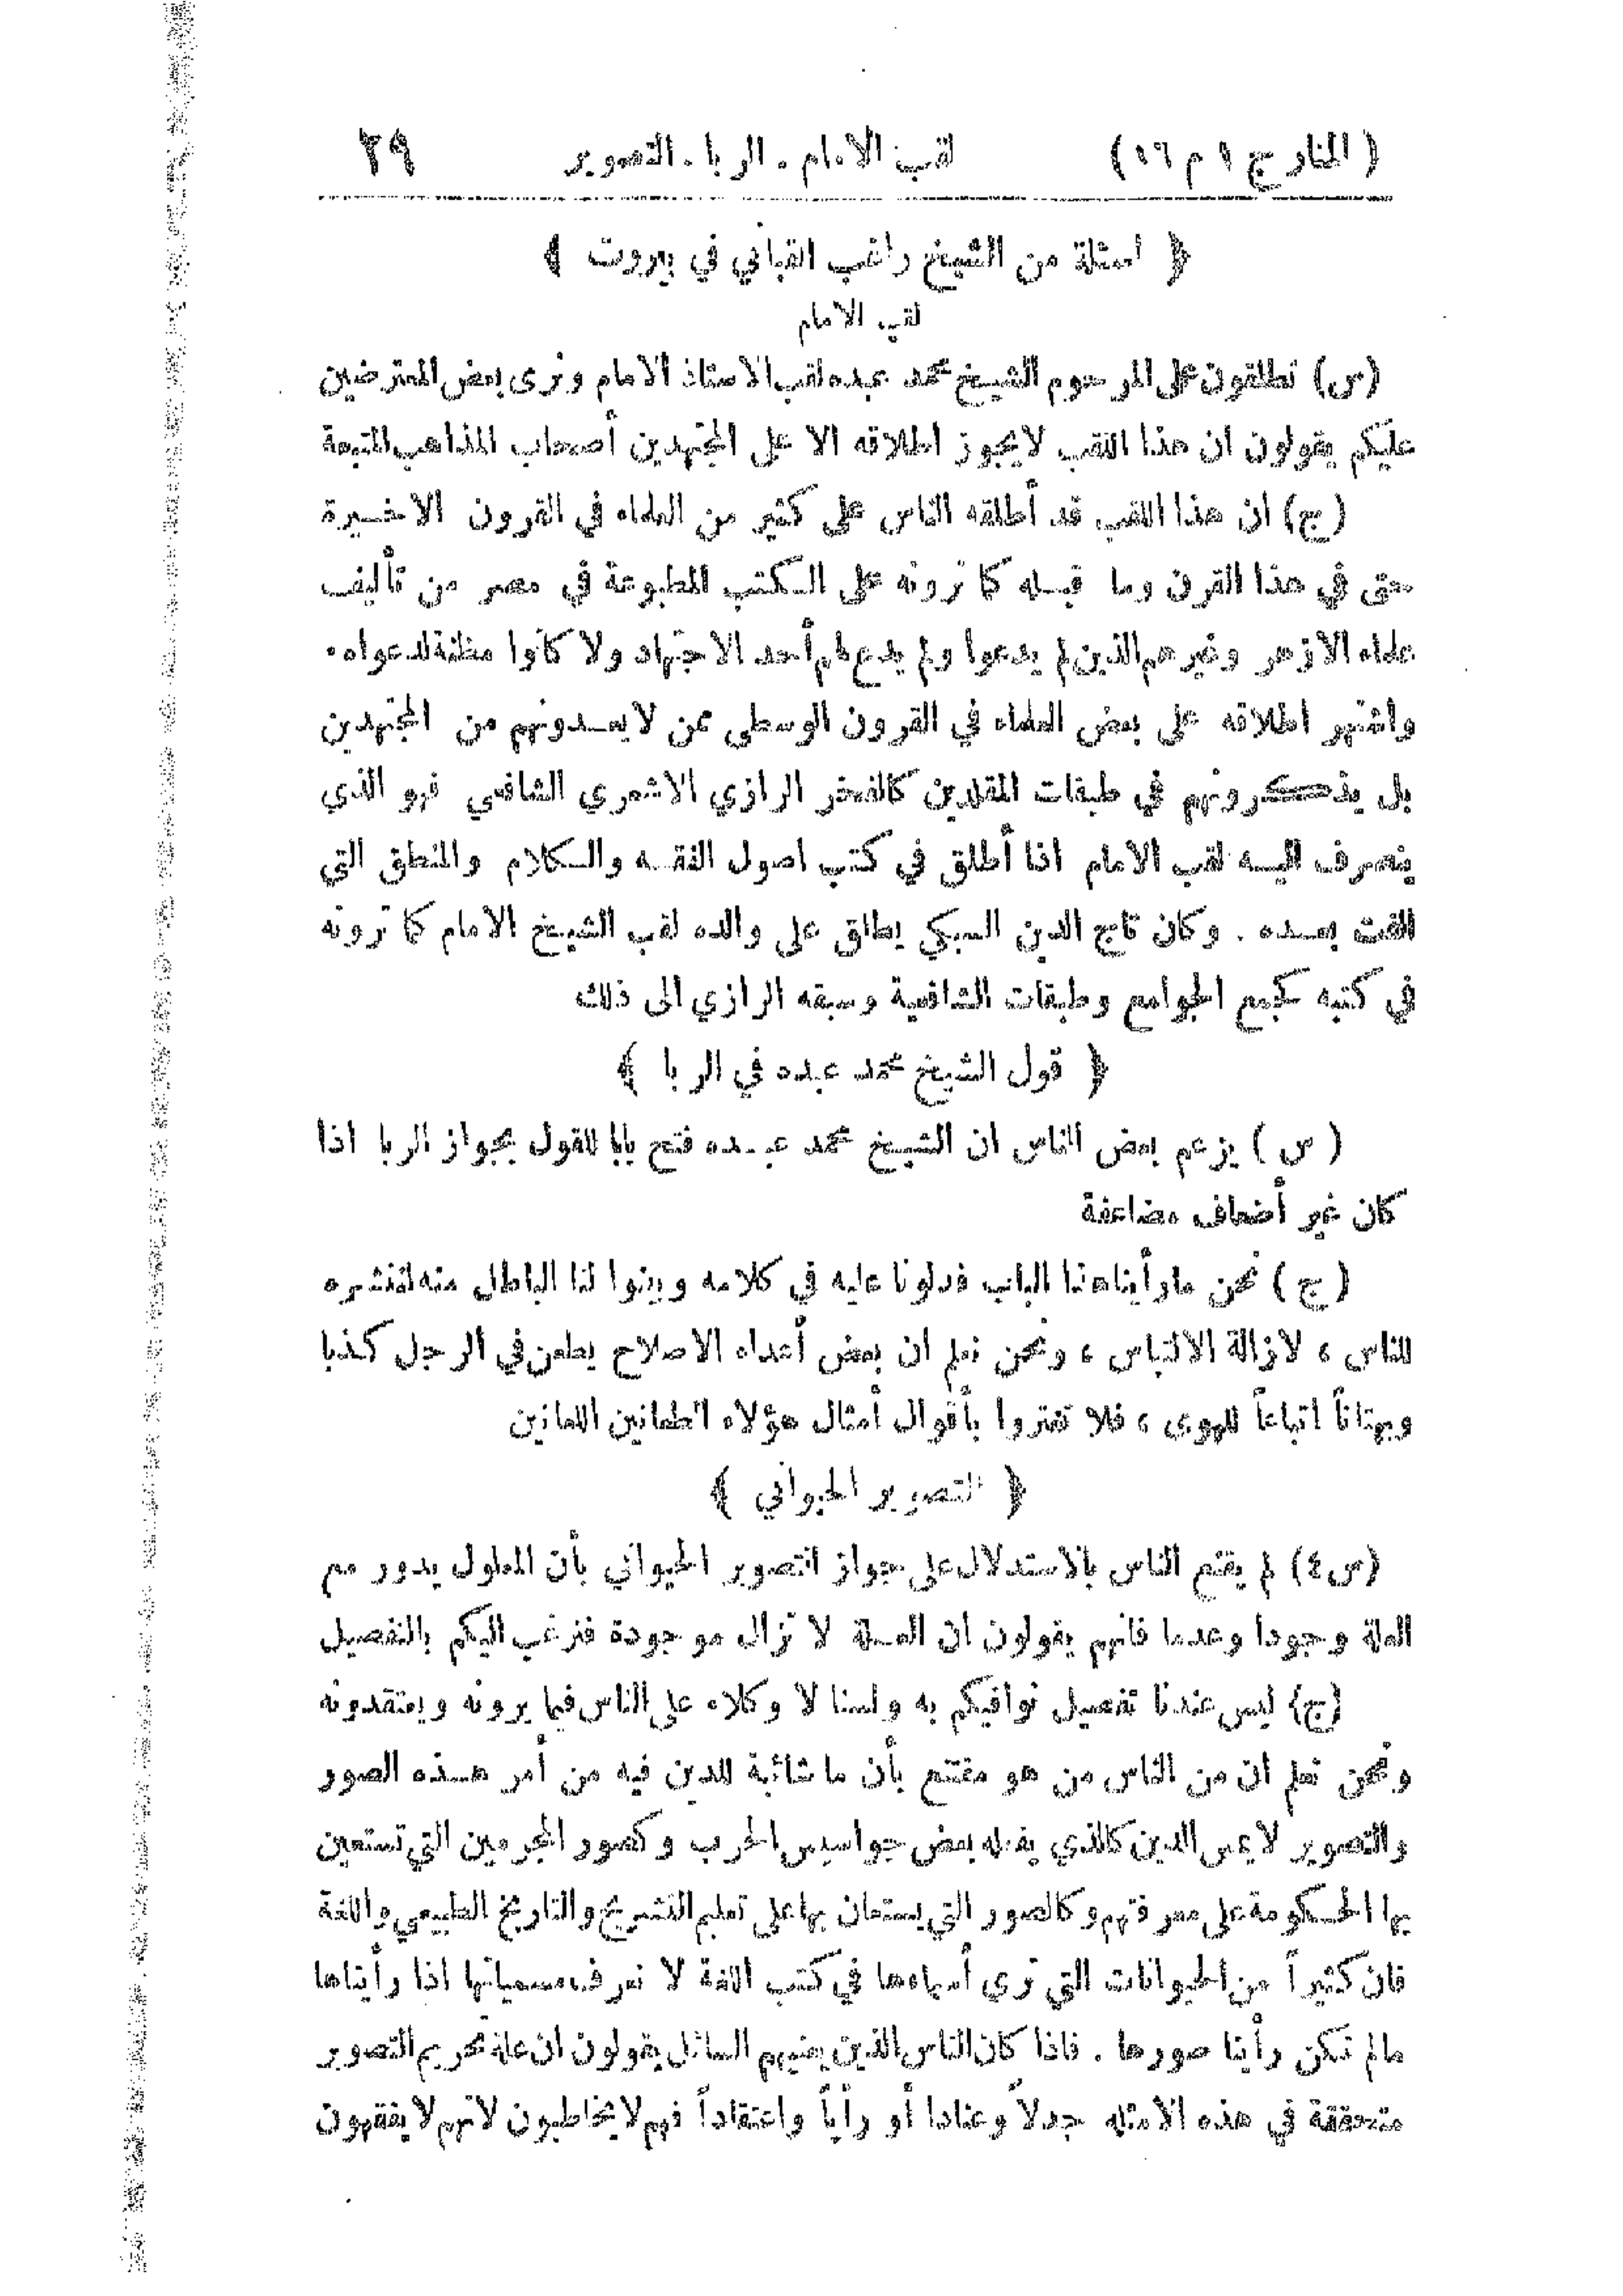 (المنار ج ١ م ١٦) لقب الامام . الربا . التصوير ٢٩
﴿ اسئلة من الشيخ راغب القباني في بيروت ﴾
لقب الامام
(س) تطلقون على المرحوم الشيخ محمد عبده لقب الاستاذ الامام ونرى بعض المعترضين
عليكم يقولون ان هذا اللقب لايجوز اطلاقه الا على المجتهدين أصحاب المذاهب المتبعة
(ج) ان هذا اللقب قد أطلقه الناس على كثير من العلماء في القرون الاخيرة
حتى في هذا القرن وما قبله كما ترونه على الكتب المطبوعة في مصر من تأليف
علماء الازهر وغيرهم الذين لم يدعوا ولم يدع لهم أحد الاجتهاد ولا كانوا مظنة لدعواه.
واشتهر اطلاقه على بعض العلماء في القرون الوسطى ممن لايعدونهم من المجتهدين
بل يذكرونهم في طبقات المقلدين كالفخر الرازي الاشعري الشافعي فهو الذي
ينصرف اليه لقب الامام اذا أطلق في كتب اصول الفقه والكلام والمنطق التي
الفت بعده . وكان تاج الدين السبكي يطلق على والده لقب الشيخ الامام كما ترونه
في كتبه كجمع الجوامع وطبقات الشافعية وسبقه الرازي الى ذلك
﴿ قول الشيخ محمد عبده في الربا ﴾
( س ) يزعم بعض الناس ان الشيخ محمد عبده فتح بابا للقول بجواز الربا اذا
كان غير أضعاف مضاعفة
( ج ) نحن مارأيناهذا الباب فدلونا عليه في كلامه وبينوا لنا الباطل منه لننشره
للناس ، لازالة الالتباس ، ونحن نعلم ان بعض أعداء الاصلاح يطعن في الرجل كذبا
وبهتاناً اتباعاً للهوى ، فلا تغتروا بأقوال أمثال هؤلاء الطعانين اللعانين
﴿ التصوير الحيواني ﴾
(س٤) لم يقنع الناس بالاستدلال على جواز التصوير الحيواني بأن المعلول يدور مع
العلة وجودا وعدما فانهم يقولون ان العلة لا تزال موجودة فنرغب اليكم بالتفصيل
(ج) ليس عندنا تفصيل نوافيكم به ولسنا لا وكلاء على الناس فيما يرونه ويعتقدونه
ونحن نعلم ان من الناس من هو مقتنع بأن ما شائبة للدين فيه من أمر هذه الصور
والتصوير لايمس الدين كالذي يفعله بعض جواسيس الحرب وكصور المجرمين التي تستعين
بها الحكومة على معرفتهم وكالصور التي يستعان بها على تعليم التشريح والتاريخ الطبيعي واللغة
فان كثيراً من الحيوانات التي نرى أسماءها في كتب اللغة لا نعرف مسمياتها اذا رأيناها
مالم نكن رأينا صورها . فاذا كان الناس الذين يعنيهم السائل يقولون ان علة تحريم التصوير
متحققة في هذه الامثلة جدلاً وعنادا أو رأياً واعتقاداً فهم لايخاطبون لانهم لايفقهون